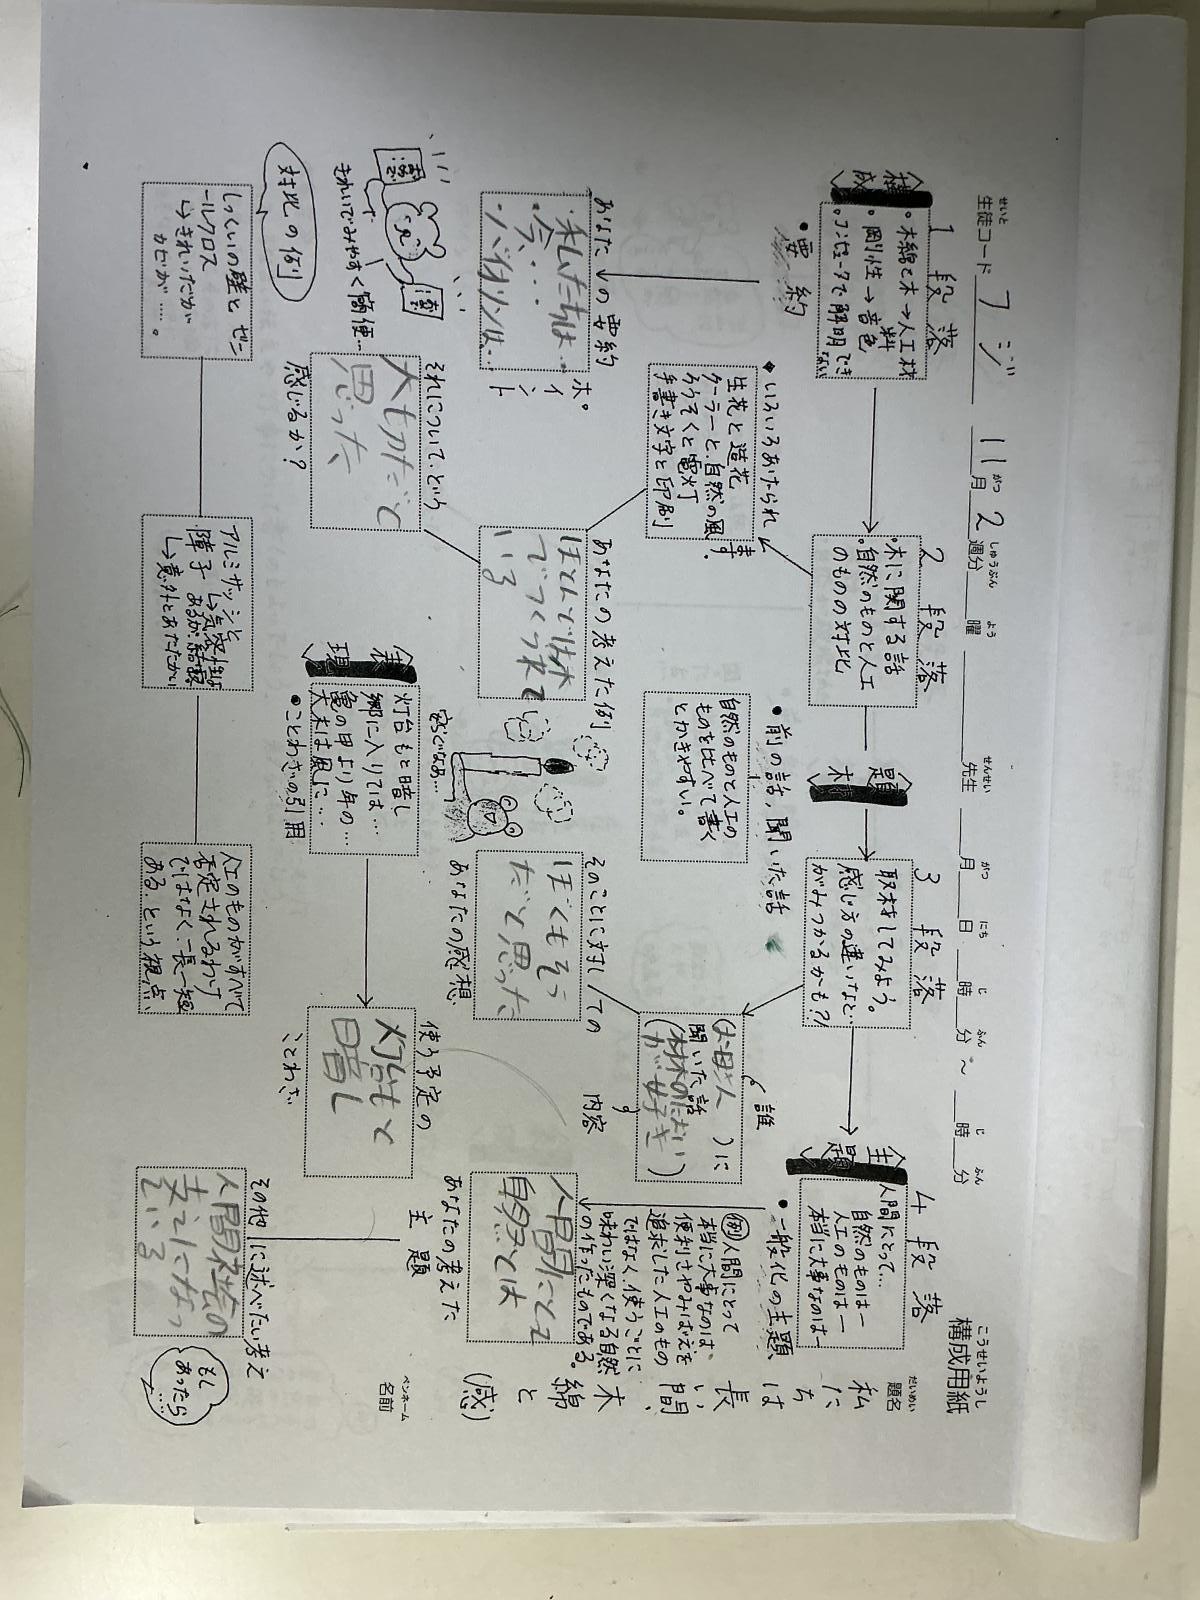 構成用紙
こうせいようし
生徒コード フジ
せいと
11月2週分 曜 先生 月 日 時 分~ 時 分
がつ しゅうぶん よう せんせい がつ にち じ ふん じ ふん
題名
だいめい
私たちは長い間、木綿と(感)
ペンネーム
名前
1段落
構成
・木綿と木→人工材料
・剛性→音色
・コンピュータで解明できない
・要約
あなたの要約
私たちは…
今、…
バイオリンは…
ポイント
きれいでみやすく簡便…
対比の例
しっくいの壁とビニールクロス
↳きれいだがカビが……。
2段落
・木に関する話
・自然のものと人工のものの対比
◆いろいろあげられます。
生花と造花
クーラーと、自然の風
ろうそくと電灯
手書き文字と印刷
あなたの考えた例
ほとんどは木でつくられている
それについて、どう感じるか?
大切だと思った、
アルミサッシと障子
↳気密性はあるが結露
↳意外とあたたかい
題材
・前の話、聞いた話
自然のものと人工のものを比べて書くとかきやすい。
3段落
取材をしてみよう。
感じ方の違いなど…がみつかるかも?!
誰
(お母さん)に聞いた話
(材木のにおいが好き)
内容
そのことに対しての
ぼくもそうだと思った
あなたの感想
表現
灯台もと暗し
郷に入りては…
亀の甲より年の…
大木は風に…
・ことわざの引用
使う予定の
灯台もと暗し
ことわざ
人工のものがすべて否定されるわけではなく、一長一短ある、という視点
4段落
主題
人間にとって…
自然のものは―
人工のものは―
本当に大事なのは―
・一般化の主題、
例 人間にとって本当に大事なのは、便利さやみばえを追求した人工のものではなく、使うごとに味わい深くなる自然の作ったものである。
人間にとって自然とは
あなたの考えた主題
その他に述べたい考え
人間社会の支えになっている
もしあったら……